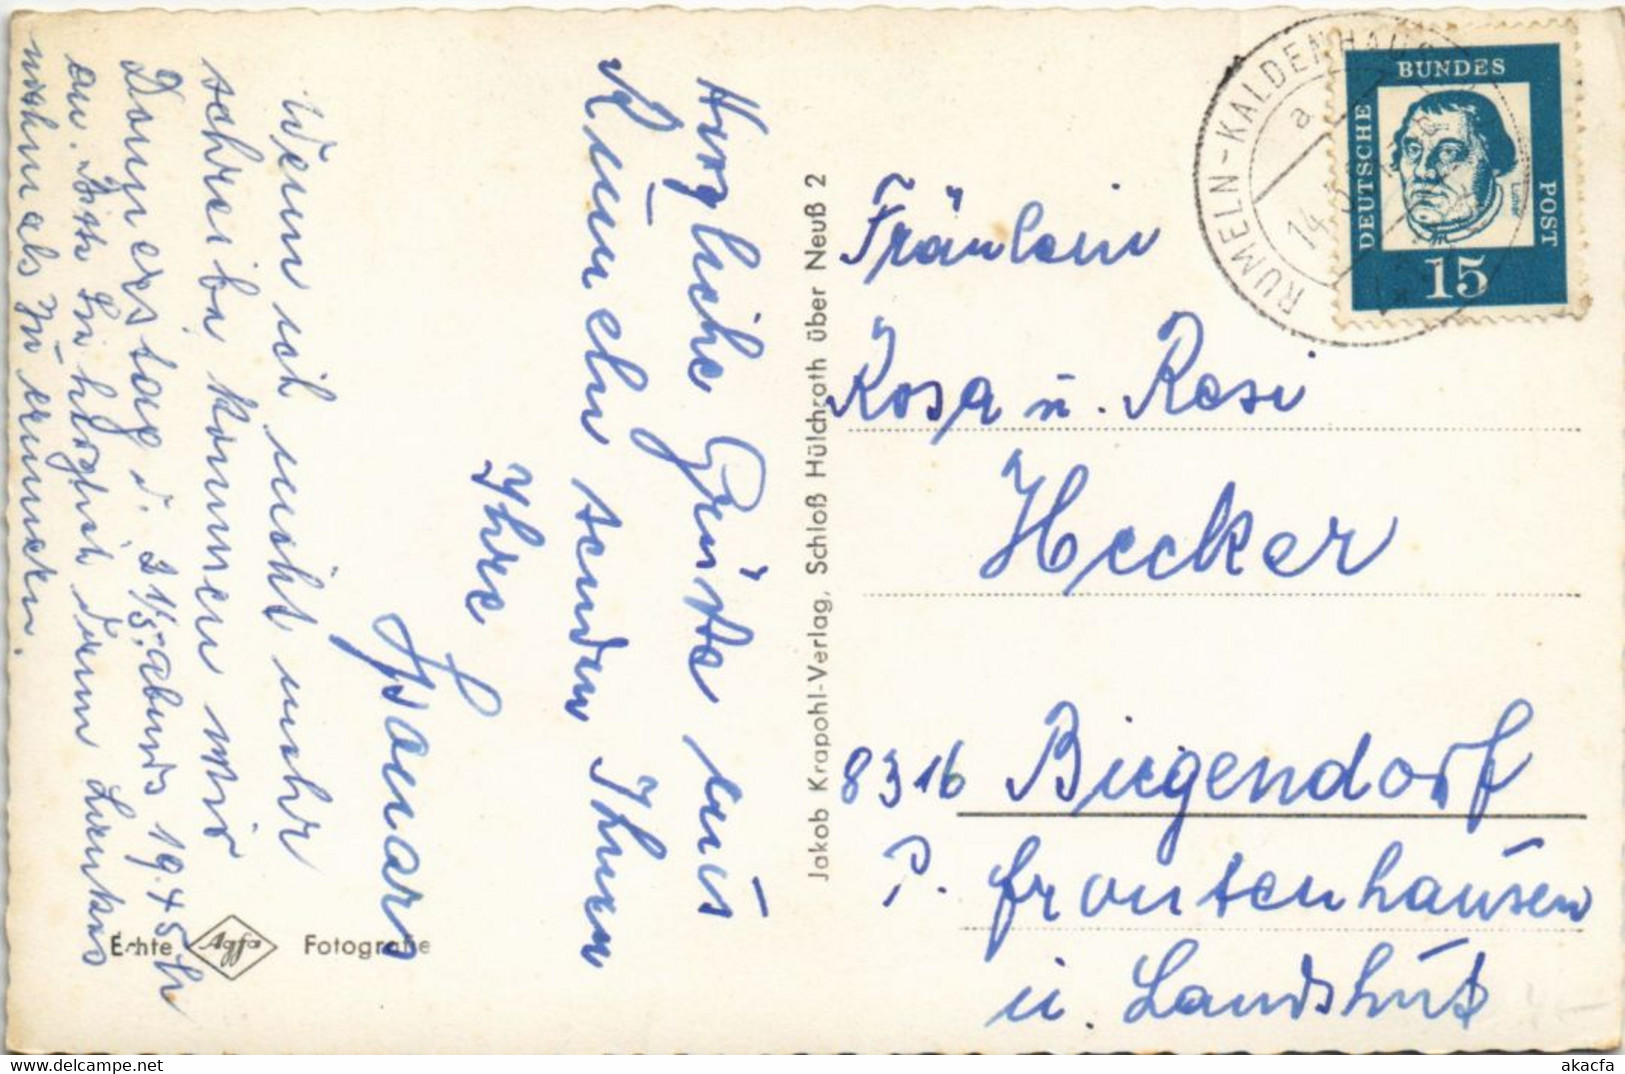 Herzliche Grüße aus
Rumeln senden Ihnen
Ihre
Wenn ich nicht mehr
schreibe kommen wir
Donnerstag d. 21/5. abends 19.45 h
an. Bitte Sie höflichst dann
nochmals zu erinnern.
Echte Agfa Fotografie
Jakob Krapohl-Verlag, Schloß Hülchrath über Neuß 2
RUMELN-KALDENHAUSEN
a
14.5
DEUTSCHE
BUNDES
POST
Luther
15
Fräulein
Rosa u. Resi
Hecker
8316 Bügendorf
P. Frontenhausen
ü. Landshut
© akacfa
akacfa